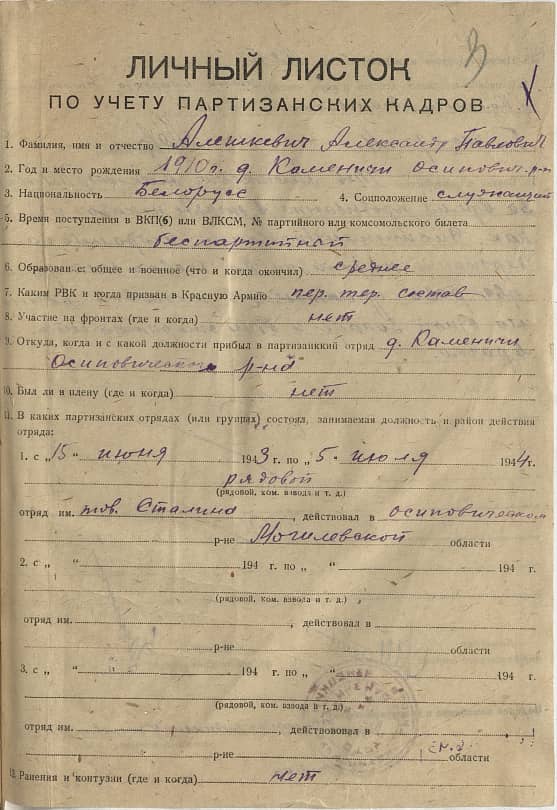 ЛИЧНЫЙ ЛИСТОК
ПО УЧЕТУ ПАРТИЗАНСКИХ КАДРОВ
1. Фамилия, имя и отчество Алешкевич Александр Павлович
2. Год и место рождения 1910 г. д. Каменичи Осипович. р-н
3. Национальность Белорусс 4. Соцположение служащий
5. Время поступления в ВКП(б) или ВЛКСМ, № партийного или комсомольского билета
беспартийной
6. Образование: общее и военное (что и когда окончил) среднее
7. Каким РВК и когда призван в Красную Армию пер. тер. состав
8. Участие на фронтах (где и когда) нет
9. Откуда, когда и с какой должности прибыл в партизанкий отряд д. Каменичи
Осиповического р-на
10. Был ли в плену (где и когда) нет
11. В каких партизанских отрядах (или группах) состоял, занимаемая должность и район действия
отряда:
1. с „15“ июня 1943 г. по „5“ июля 1944 г.
рядовой
(рядовой, ком. взвода и т. д.)
отряд им. тов. Сталина, действовал в осиповическом
р-не Могилевской области
2. с „ “ 194 г. по „ “ 194 г.
(рядовой, ком. взвода и т. д.)
отряд им. , действовал в
р-не области
3. с „ “ 194 г. по „ “ 194 г.
(рядовой, ком. взвода и т. д.)
отряд им. , действовал в
р-не области
12. Ранения и контузии (где и когда) нет